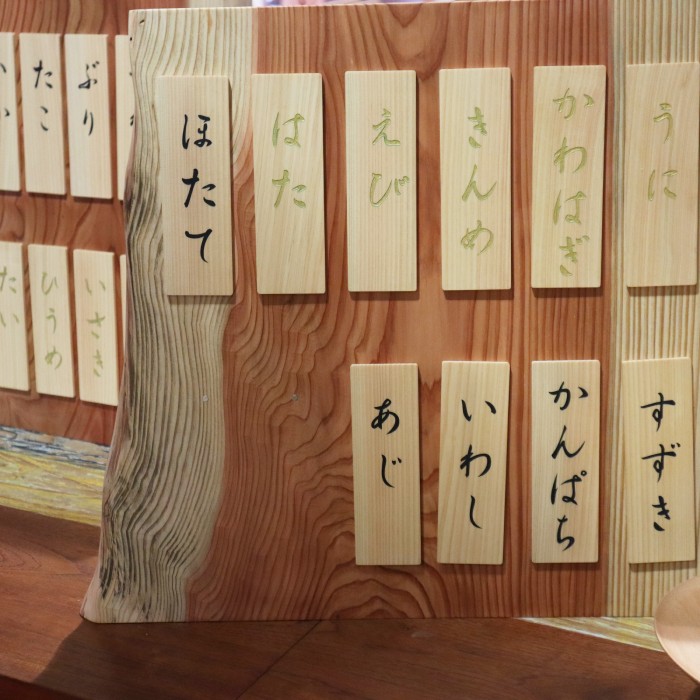 うに
かわはぎ
きんめ
えび
はた
ほたて
すずき
かんぱち
いわし
あじ
ぶり
たこ
いさき
ひうめ
たい